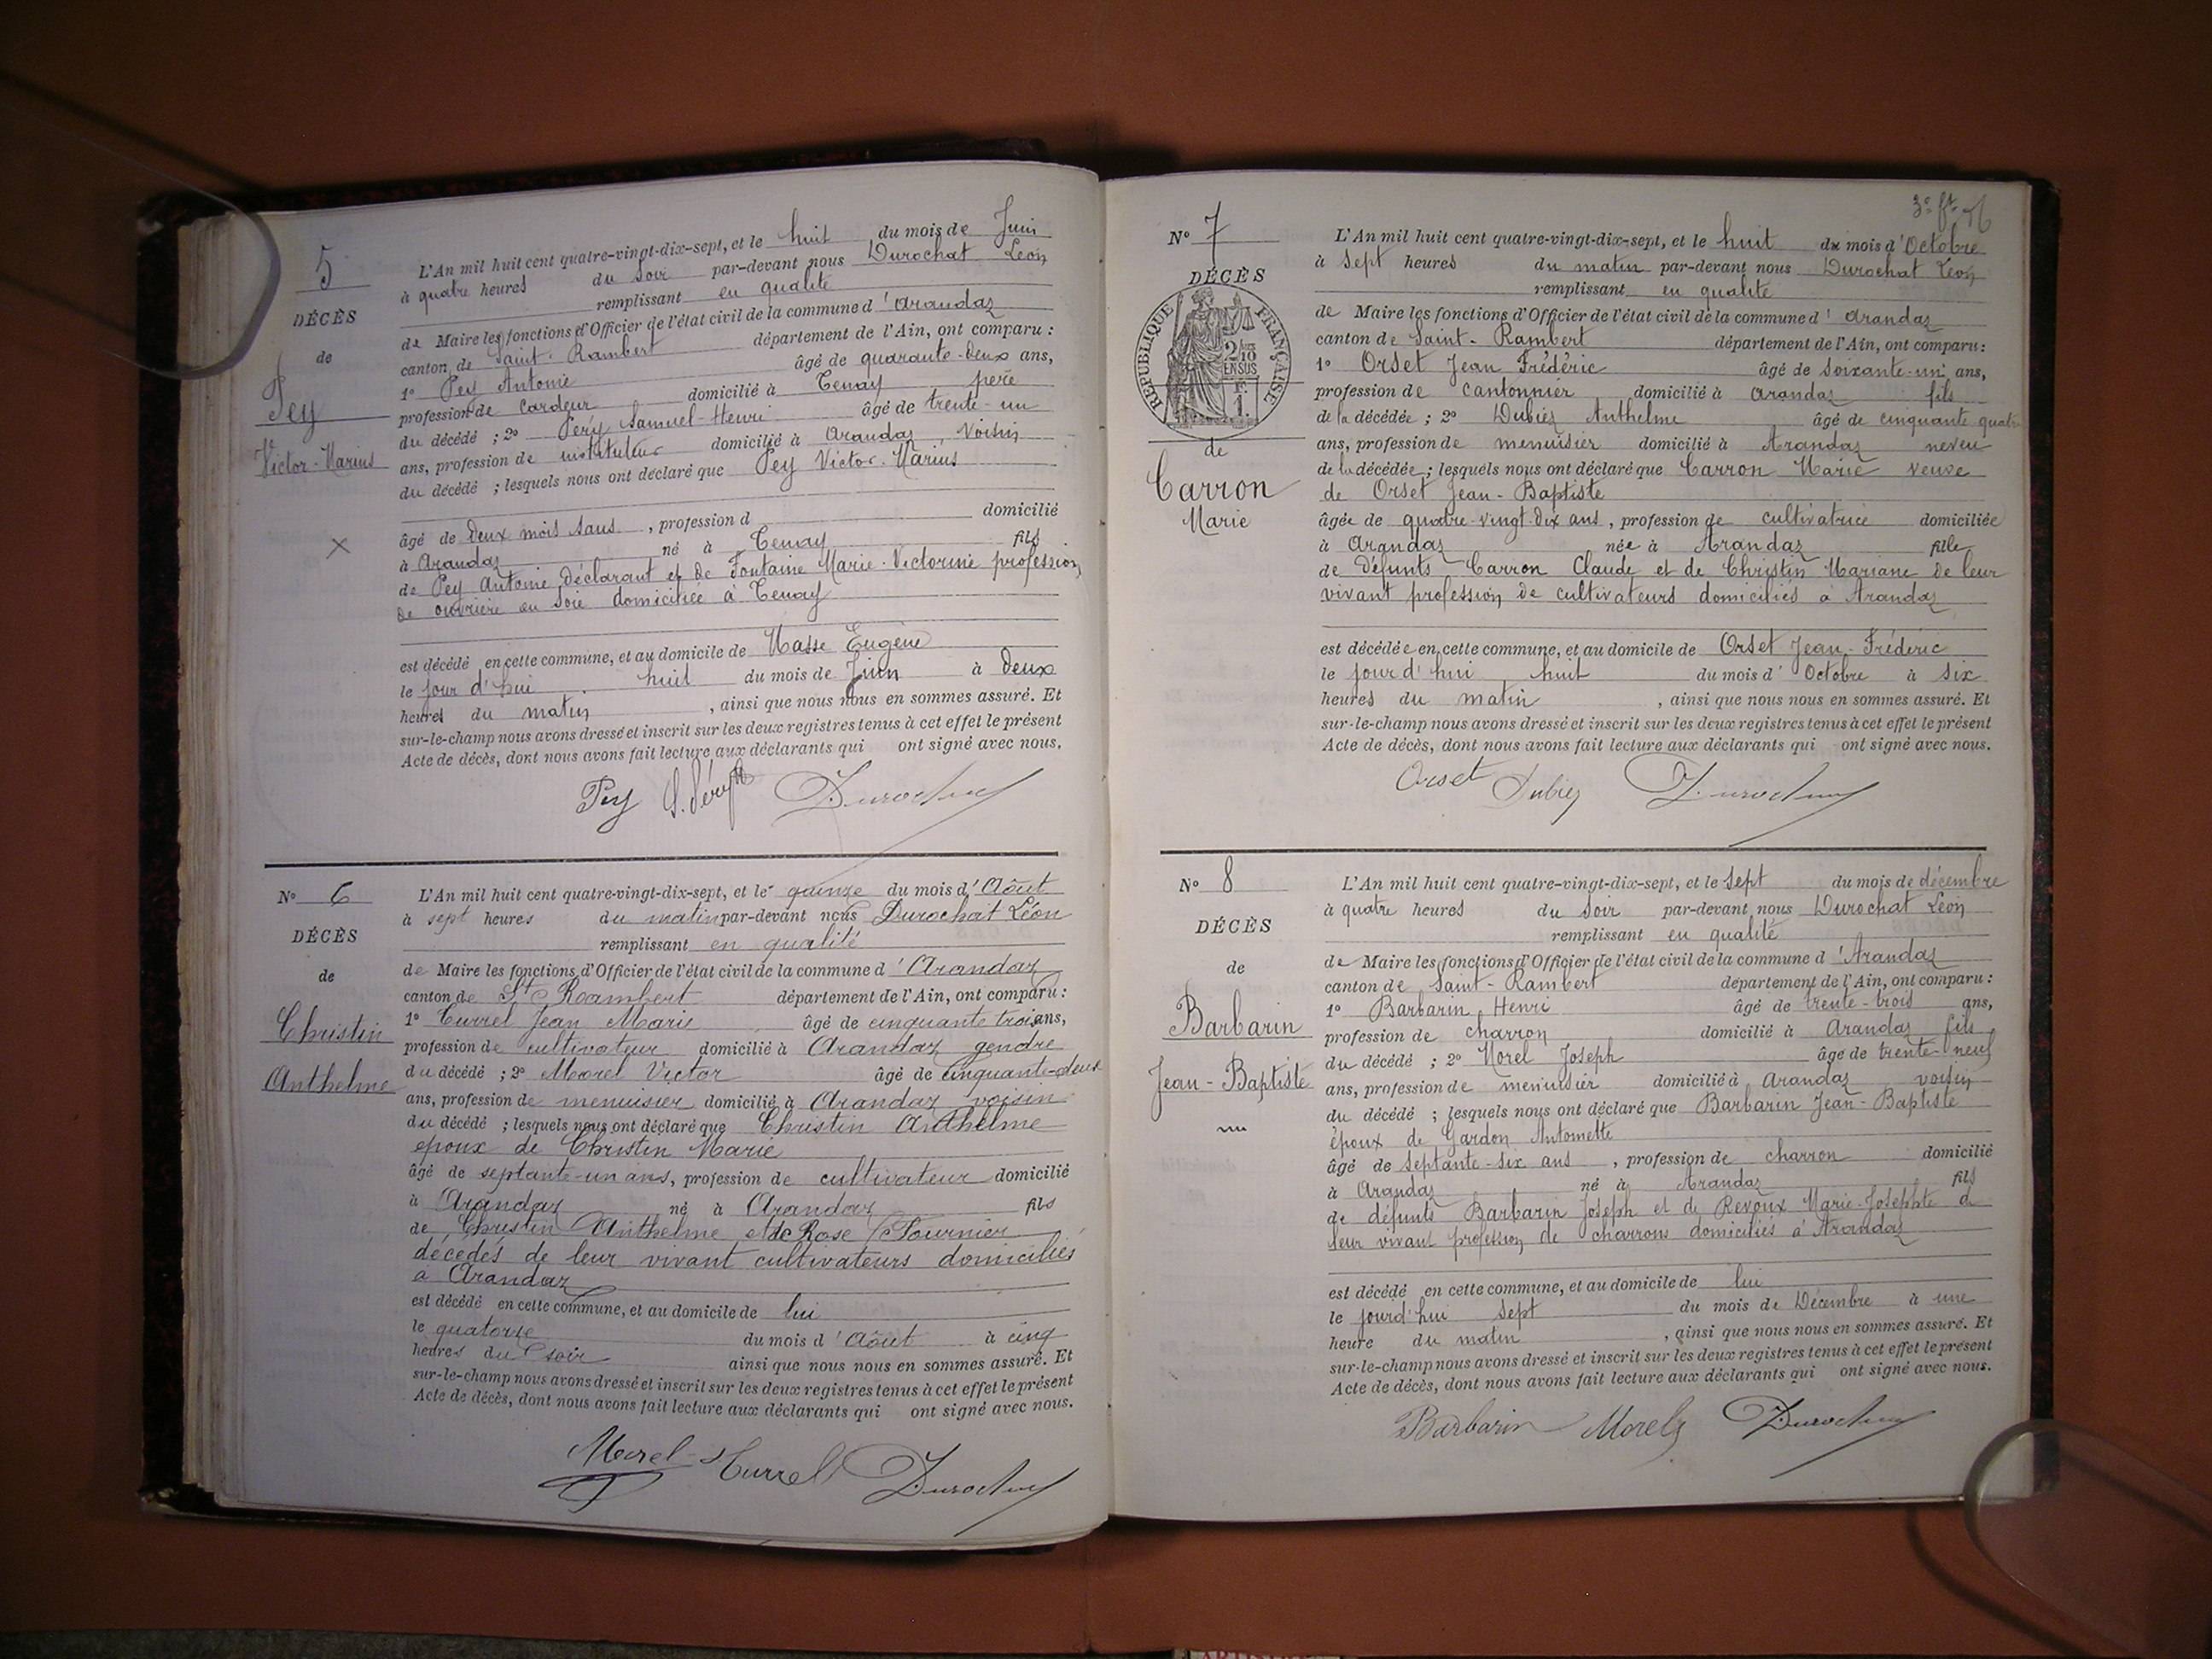 5
DÉCÈS
de
Pey
Victor-Marius
L'An mil huit cent quatre-vingt-dix-sept, et le huit du mois de Juin
à quatre heures du soir par-devant nous Durochat Léon
remplissant en qualité
de Maire les fonctions d'Officier de l'état civil de la commune d'Arandaz
canton de Saint-Rambert département de l'Ain, ont comparu :
1° Pey Antoine âgé de quarante-deux ans,
profession de cardeur domicilié à Tenay père
du décédé ; 2° Péry Samuel-Henri âgé de trente-un
ans, profession de instituteur domicilié à Arandaz, voisin
du décédé ; lesquels nous ont déclaré que Pey Victor-Marius
âgé de deux mois sans, profession d domicilié
à Arandaz né à Tenay fils
de Pey Antoine déclarant et de Fontaine Marie-Victorine profession
de ouvrière en soie domiciliée à Tenay
est décédé en cette commune, et au domicile de Masse Eugène
le jour d'hui huit du mois de Juin à deux
heures du matin, ainsi que nous nous en sommes assuré. Et
sur-le-champ nous avons dressé et inscrit sur les deux registres tenus à cet effet le présent
Acte de décès, dont nous avons fait lecture aux déclarants qui ont signé avec nous.
Pey S. Péry Durochat
N° 6
DÉCÈS
de
Christin
Anthelme
L'An mil huit cent quatre-vingt-dix-sept, et le quinze du mois d'Août
à sept heures du matin par-devant nous Durochat Léon
remplissant en qualité
de Maire les fonctions d'Officier de l'état civil de la commune d'Arandaz
canton de St Rambert département de l'Ain, ont comparu :
1° Turrel Jean Marie âgé de cinquante trois ans,
profession de cultivateur domicilié à Arandaz gendre
du décédé ; 2° Morel Victor âgé de cinquante-deux
ans, profession de menuisier domicilié à Arandaz voisin
du décédé ; lesquels nous ont déclaré que Christin Anthelme
époux de Christin Marie
âgé de septante-un ans, profession de cultivateur domicilié
à Arandaz né à Arandaz fils
de Christin Anthelme et de Rose Fournier
décédés de leur vivant cultivateurs domiciliés
à Arandaz
est décédé en cette commune, et au domicile de lui
le quatorze du mois d'Août à cinq
heures du soir ainsi que nous nous en sommes assuré. Et
sur-le-champ nous avons dressé et inscrit sur les deux registres tenus à cet effet le présent
Acte de décès, dont nous avons fait lecture aux déclarants qui ont signé avec nous.
Morel Turrel Durochat
3e ft
N° 7
DÉCÈS
RÉPUBLIQUE FRANÇAISE
2/10 EN SUS
F. 1.
de
Carron
Marie
L'An mil huit cent quatre-vingt-dix-sept, et le huit du mois d'Octobre
à sept heures du matin par-devant nous Durochat Léon
remplissant en qualité
de Maire les fonctions d'Officier de l'état civil de la commune d'Arandaz
canton de Saint-Rambert département de l'Ain, ont comparu :
1° Orset Jean Frédéric âgé de soixante-un ans,
profession de cantonnier domicilié à Arandaz fils
de la décédée ; 2° Dubiez Anthelme âgé de cinquante quatre
ans, profession de menuisier domicilié à Arandaz neveu
de la décédée ; lesquels nous ont déclaré que Carron Marie veuve
de Orset Jean-Baptiste
âgée de quatre-vingt-dix ans, profession de cultivatrice domiciliée
à Arandaz née à Arandaz fille
de défunts Carron Claude et de Christin Mariane de leur
vivant profession de cultivateurs domiciliés à Arandaz
est décédée en cette commune, et au domicile de Orset Jean-Frédéric
le jour d'hui huit du mois d'Octobre à six
heures du matin, ainsi que nous nous en sommes assuré. Et
sur-le-champ nous avons dressé et inscrit sur les deux registres tenus à cet effet le présent
Acte de décès, dont nous avons fait lecture aux déclarants qui ont signé avec nous.
Orset Dubiez Durochat
N° 8
DÉCÈS
de
Barbarin
Jean-Baptiste
L'An mil huit cent quatre-vingt-dix-sept, et le sept du mois de décembre
à quatre heures du soir par-devant nous Durochat Léon
remplissant en qualité
de Maire les fonctions d'Officier de l'état civil de la commune d'Arandaz
canton de Saint-Rambert département de l'Ain, ont comparu :
1° Barbarin Henri âgé de trente-trois ans,
profession de charron domicilié à Arandaz fils
du décédé ; 2° Morel Joseph âgé de trente-neuf
ans, profession de menuisier domicilié à Arandaz voisin
du décédé ; lesquels nous ont déclaré que Barbarin Jean-Baptiste
époux de Gardon Antoinette
âgé de septante-six ans, profession de charron domicilié
à Arandaz né à Arandaz fils
de défunts Barbarin Joseph et de Revoux Marie-Josephte d
leur vivant profession de charrons domiciliés à Arandaz
est décédé en cette commune, et au domicile de lui
le jourd'hui sept du mois de Décembre à une
heure du matin, ainsi que nous nous en sommes assuré. Et
sur-le-champ nous avons dressé et inscrit sur les deux registres tenus à cet effet le présent
Acte de décès, dont nous avons fait lecture aux déclarants qui ont signé avec nous.
Barbarin Morel Durochat